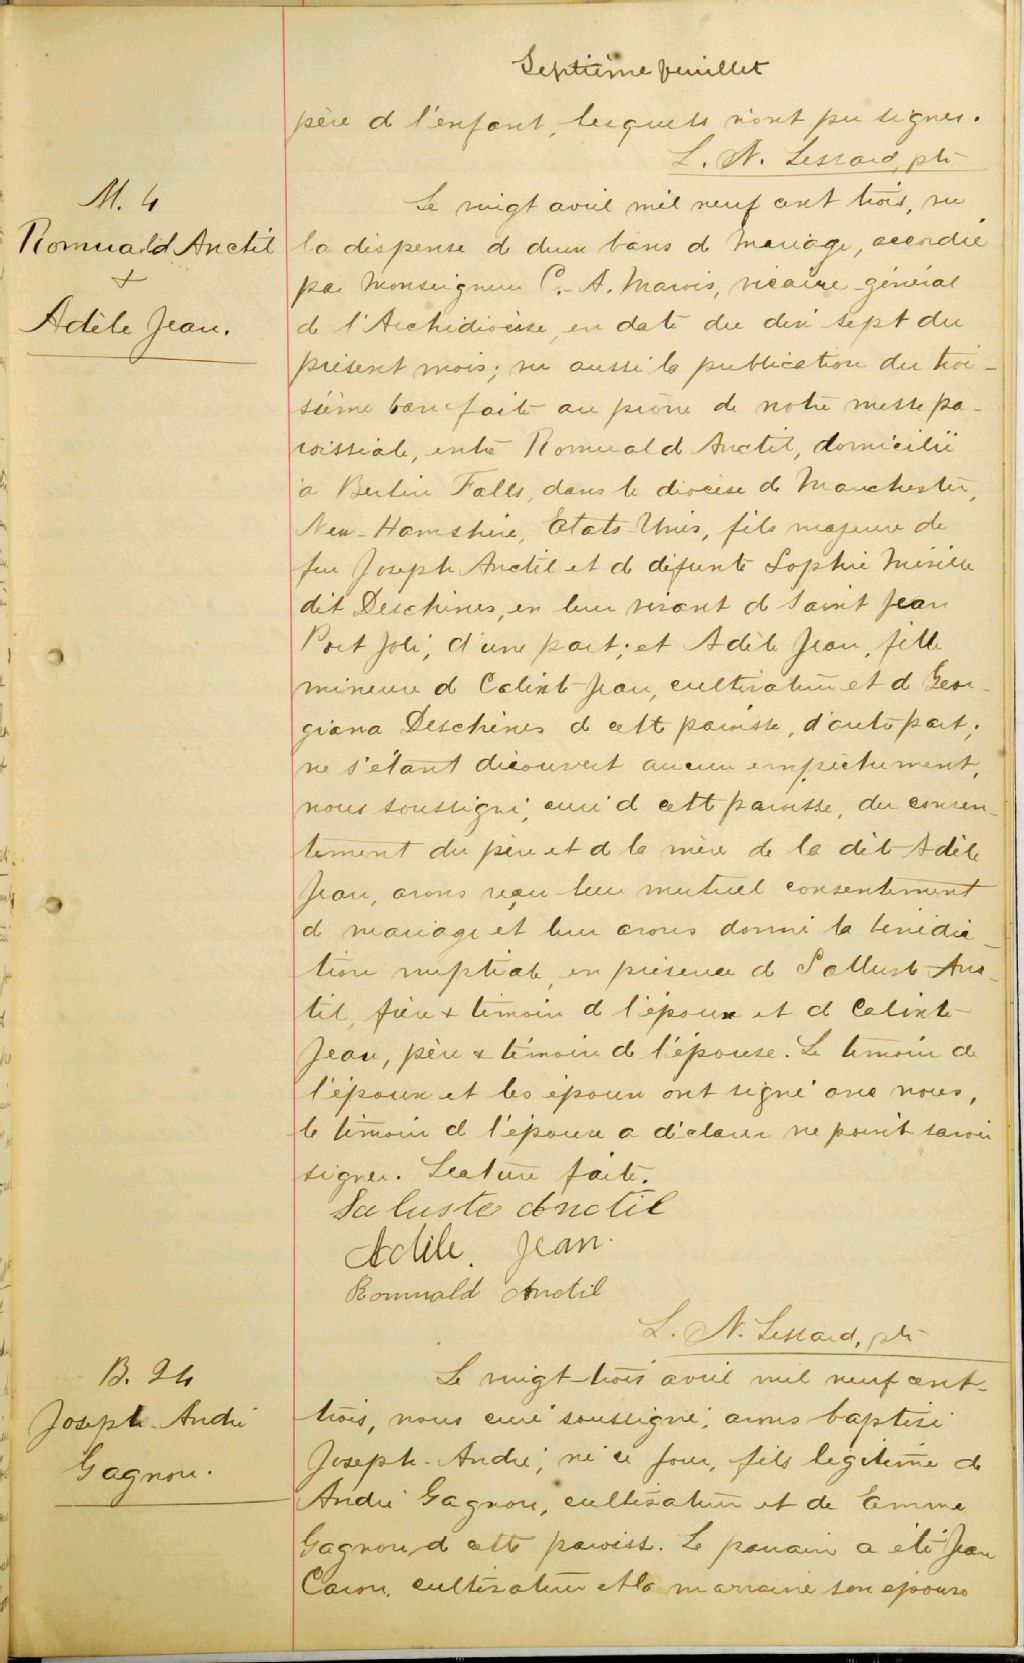 Septième feuillet
père de l'enfant, lesquels n'ont pu signer.
L. N. Lessard, ptre
M. 4
Romuald Anctil
+
Adèle Jean.
Le vingt avril mil neuf cent trois, vu
la dispense de deux bans de mariage, accordée
par Monseigneur C.-A. Marois, vicaire-général
de l'Archidiocèse, en date du dix sept du
présent mois; vu aussi la publication du troi-
sième ban faite au prône de notre messe pa-
roissiale, entre Romuald Anctil, domicilié
à Berlin Falls, dans le diocèse de Manchester,
New-Hamshire, Etats-Unis, fils majeur de
feu Joseph Anctil et de défunte Sophie Miville
dit Deschènes, en leur vivant de Saint Jean
Port Joli, d'une part; et Adèle Jean, fille
mineure de Calixte Jean, cultivateur et de Geor-
giana Deschènes de cette paroisse, d'autre part;
ne s'étant découvert aucun empêchement,
nous soussigné, curé de cette paroisse, du consen-
tement du père et de la mère de la dite Adèle
Jean, avons reçu leur mutuel consentement
de mariage et leur avons donné la bénédic-
tion nuptiale, en présence de Salluste Anc-
til, frère & témoin de l'époux et de Calixte
Jean, père & témoin de l'épouse. Le témoin de
l'époux et les époux ont signé avec nous,
le témoin de l'épouse a déclaré ne point savoir
signer. Lecture faite.
Saluste Anctil
Adèle Jean
Romuald Anctil
L. N. Lessard, ptre
B. 24
Joseph-André
Gagnon.
Le vingt-trois avril mil neuf cent-
trois, nous curé soussigné, avons baptisé
Joseph-André, né ce jour, fils légitime de
André Gagnon, cultivateur et de Emma
Gagnon de cette paroisse. Le parrain a été Jean
Caron, cultivateur et la marraine son épouse